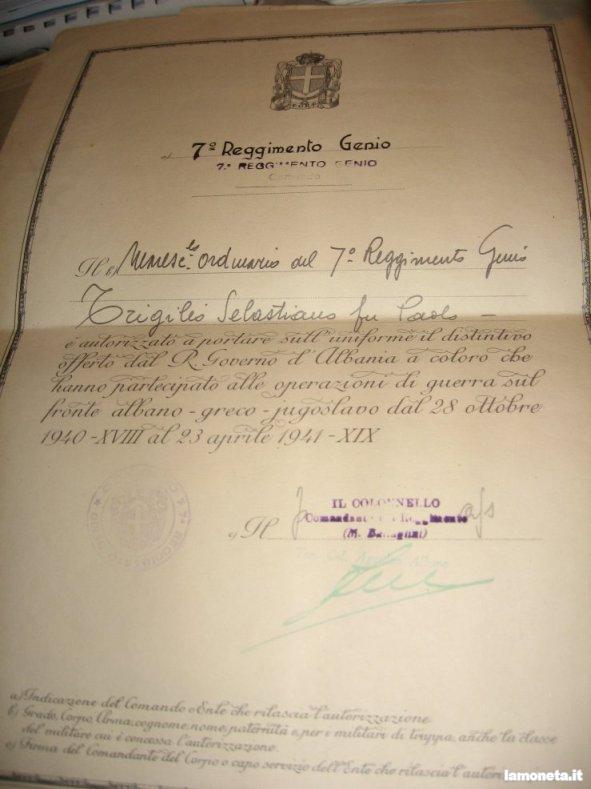 a) 7º Reggimento Genio
7º REGGIMENTO GENIO
Comando
Il b) Maresc.le ordinario del 7º Reggimento Genio
Trigilio Sebastiano fu Paolo -
è autorizzato a portare sull'uniforme il distintivo
offerto dal R. Governo d'Albania a coloro che
hanno partecipato alle operazioni di guerra sul
fronte albano-greco-jugoslavo dal 28 ottobre
1940-XVIII al 23 aprile 1941-XIX
IL COLONNELLO
c) Il
Comandante Reggimento
Ten. Col.
a) Indicazione del Comando o Ente che rilascia l'autorizzazione.
b) Grado, Corpo, Arma, cognome, nome, paternità e, per i militari di truppa, anche la classe
del militare cui è concessa l'autorizzazione.
c) Firma del Comandante del Corpo o capo servizio dell'Ente che rilascia l'
lamoneta.it